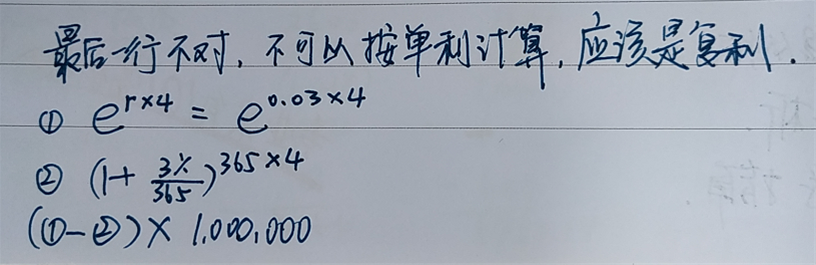 最后一行不对，不可以按单利计算，应该是复利.
① e^{r×4} = e^{0.03×4}
② (1+ \frac{3%}{365})^{365×4}
(①-②)× 1,000,000